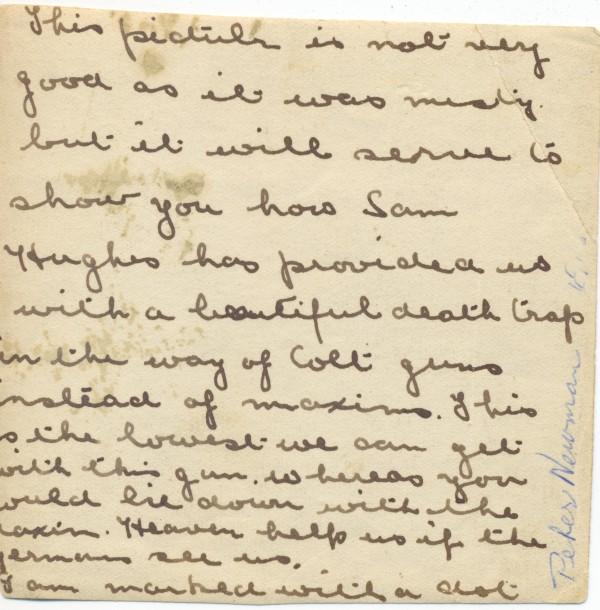 This picture is not very
good as it was misty
but it will serve to
show you how Sam
Hughes has provided us
with a beautiful death trap
in the way of Colt guns
instead of maxims. This
is the lowest we can get
with this gun. whereas you
ould lie down with the
axin. Heaven help us if the
germans see us.
I am marked with a dot
Peter Newman